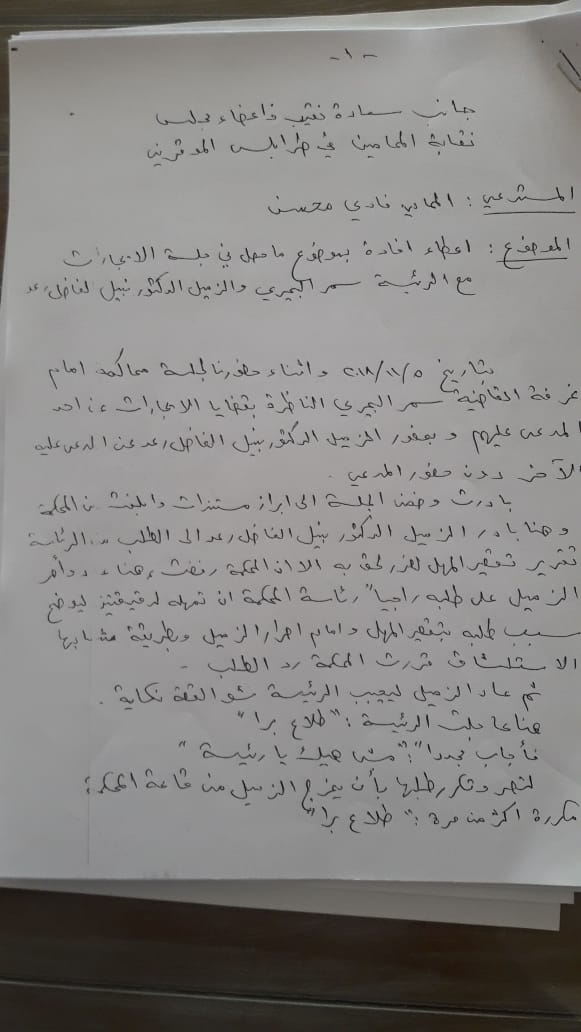 - ١ -
جانب سعادة نقيب واعضاء مجلس
نقابة المحامين في طرابلس الموقرين
المستدعي : المحامي فادي محسن
الموضوع : اعطاء افادة بموضوع ما حصل في جلسة الايجارات
مع الرئيسة سمر البحيري والزميل الدكتور نبيل الفاضل رعد
بتاريخ ٢٠١٨/١١/٥ واثناء حضورنا لجلسة محاكمة امام
غرفة القاضية سمر البحيري الناظرة بقضايا الايجارات عن احد
المدعى عليهم وبحضور الزميل الدكتور نبيل الفاضل رعد عن المدعى عليه
الآخر دون حضور المدعي .
بادرت وضمن الجلسة الى ابراز مستندات والمحكمة
وهنا بادر الزميل الدكتور نبيل الفاضل رعد الى الطلب من الرئاسة
تقرير تقصير المهل لغبن لحق به الا ان المحكمة رفضت، هنا
الزميل على طلبه راجيا" رئاسة المحكمة ان تمهله لدقيقتين ليوضح
سبب طلبه بتقصير المهل وامام اصرار الزميل وبطريقة مشابها
قررت المحكمة رد الطلب -
ثم عاد الزميل ليجيب الرئيسة شو القصة نكاية .
هنا عاجلت الرئيسة : "طلاع برا"
فأجاب مجددا" : "مش هيك يا رئيسة"
لتصر وتكرر طلبها بأن يخرج الزميل من قاعة المحكمة
مكررة اكثر من مرة : "طلاع برا"